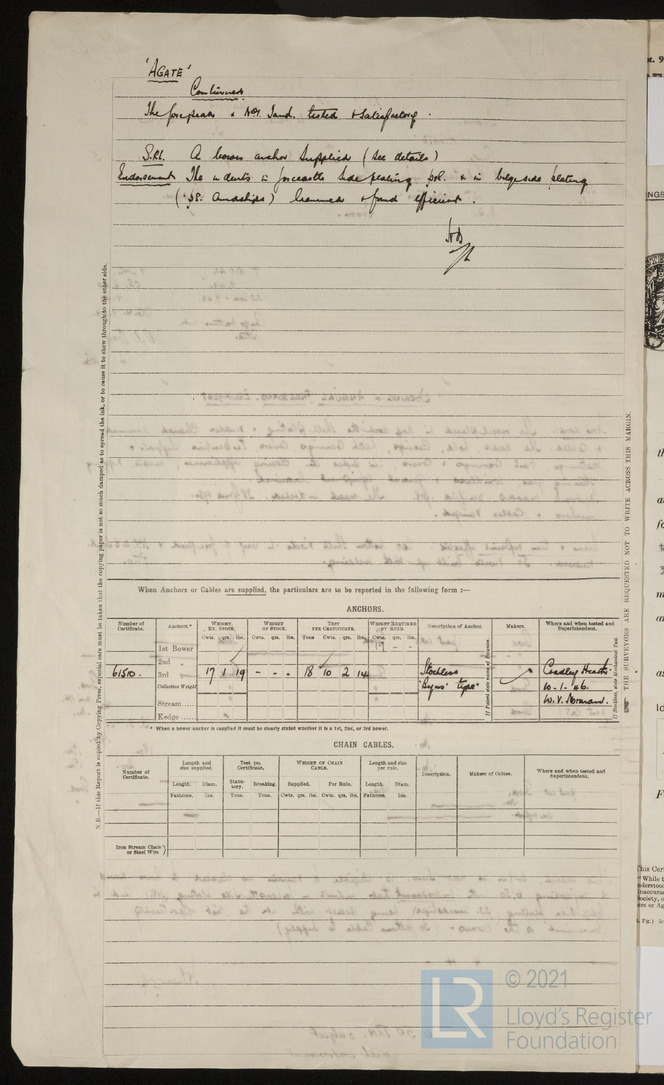 'AGATE'
Continued
The forepeak & No1 Tank tested & satisfactory.
S.Rl. A bower anchor supplied (see details)
Endorsement The indents in forecastle side plating port & in bilge side plating
(SS. Amidships) examined & found efficient.
N.B.—If this Report is copied by Copying Press, especial care must be taken that the copying paper is not so much damped as to spread the ink, or to cause it to show through to the other side.
THE SURVEYORS ARE REQUESTED NOT TO WRITE ACROSS THIS MARGIN.
When Anchors or Cables are supplied, the particulars are to be reported in the following form :—
ANCHORS.
Number of Certificate. Anchors.* Weight, Ex. Stock. Weight of Stock. Test per Certificate. Weight Required per Rule. Description of Anchor. Makers. Where and when tested and Superintendent.
Cwts. qrs. lbs. Cwts. qrs. lbs. Tons Cwts. qrs. lbs. Cwts. qrs. lbs.
1st Bower 17 - -
2nd "
61510. 3rd " 17 1 19 - - - 18 10 2 14 Stockless Cradley Heath
Collective Weight "Byers" type 10-1-46.
Stream W. V. Normand.
Kedge
* When a bower anchor is supplied it must be clearly stated whether it is a 1st, 2nd, or 3rd bower.
CHAIN CABLES.
Number of Certificate. Length and size supplied. Test per Certificate. Weight of Chain Cable. Length and size per rule. Description. Makers of Cables. Where and when tested and Superintendent.
Length. Diam. Statutory. Breaking. Supplied. Per Rule. Length. Diam.
Fathoms. Ins. Tons. Tons. Cwts. qrs. lbs. Cwts. qrs. lbs. Fathoms. Ins.
Iron Stream Chain or Steel Wire
© 2021
LR
Lloyd's Register
Foundation